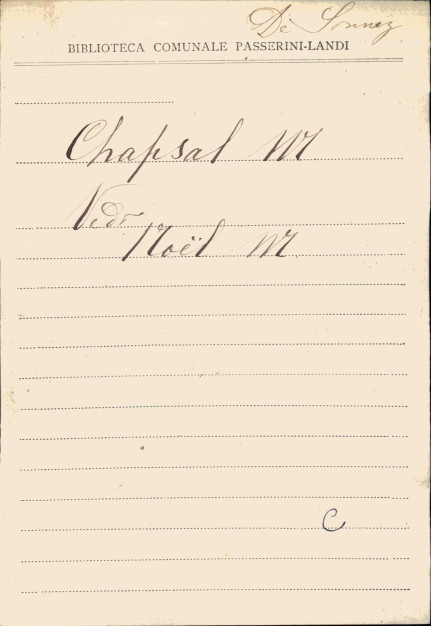 BIBLIOTECA COMUNALE PASSERINI-LANDI
Chapsal M
Ved
Noël M
C